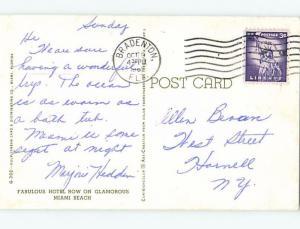 Sunday
Hi
Thare sure
having a wonderful
trip. The ocean
is as warm as
a bath tub.
Miami is some
sight at night
Marjori Hedden
FABULOUS HOTEL ROW ON GLAMOROUS
MIAMI BEACH
BRADENTON
OCT
FLA
POST CARD
3¢
LIBERTY
Ellen Bevan
West Street
Hornell
N.Y.